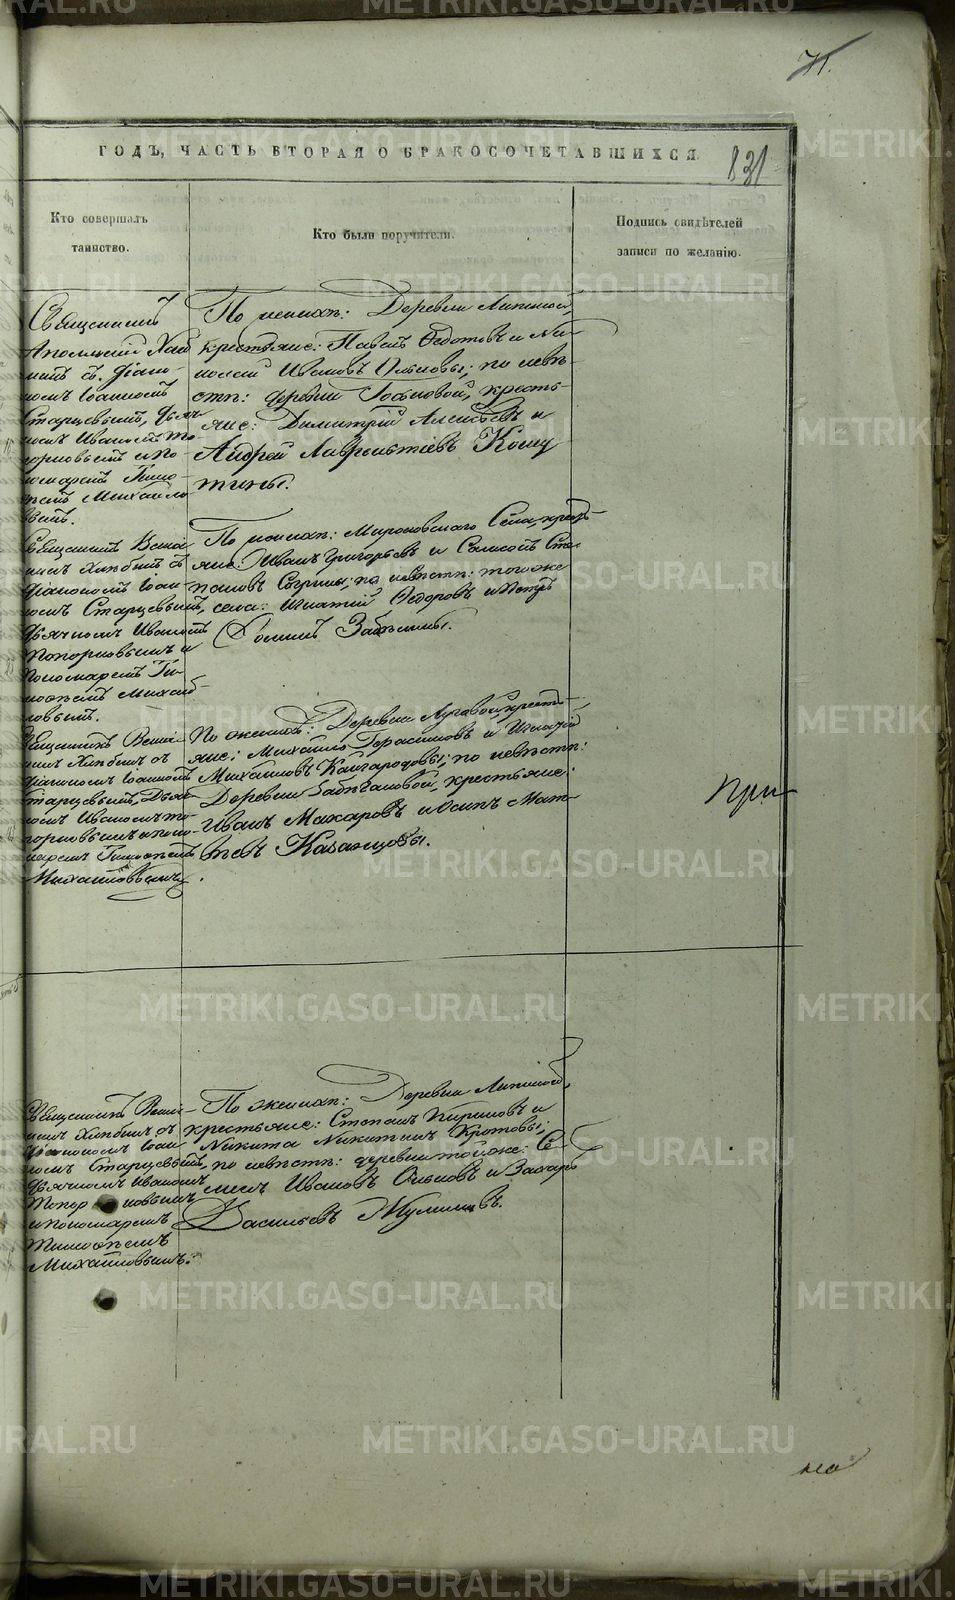 71.
ГОДЪ, ЧАСТЬ ВТОРАЯ О БРАКОСОЧЕТАВШИХСЯ.
831
Кто совершалъ
таинство.
Кто были поручители.
Подпись свидѣтелей
записи по желанію.
Священникъ
съ Діако-
номъ Іоанномъ
Старцевымъ, Дьяч-
комъ Иваномъ То-
порковымъ и По-
номаремъ Тимо-
ѳеемъ Михайло-
вымъ.
По женихѣ: Деревни Липиной,
крестьяне: Павелъ Ѳедотовъ и Ни-
колай Ивановъ Ольковы; по невѣ-
стѣ: деревни кресть-
яне: Димитрій Алексѣевъ и
Андрей Лаврентьевъ
Священникъ
Хлѣбинъ съ
Діакономъ Іоан-
номъ Старцевымъ,
Дьячкомъ Иваномъ
Топорковымъ и
Пономаремъ Ти-
моѳеемъ Михай-
ловымъ.
По женихѣ: Мироновскаго Села, кресть-
яне: Иванъ Григорьевъ и Самсонъ Сте-
пановъ по невѣстѣ: тогоже
села: Игнатій Ѳедоровъ и Петръ
Ѳоминъ Забѣлины.
Священникъ
Хлѣбинъ съ
Діакономъ Іоанномъ
Старцевымъ, Дьяч-
комъ Иваномъ То-
порковымъ и поно-
маремъ Тимоѳеемъ
Михайловымъ.
По женихѣ: Деревни Луговой, кресть-
яне: Михайло Герасимовъ и Игнатій
Михайловъ Кайгородовы; по невѣстѣ:
Деревни крестьяне:
Иванъ Макаровъ и Осипъ Мат-
вѣевъ Казанцовы.
При-
Священникъ
Хлѣбинъ съ
Діакономъ Іоан-
номъ Старцевымъ,
Дьячкомъ Иваномъ
Топорковымъ
и пономаремъ
Тимоѳеемъ
Михайловымъ.
По женихѣ: Деревни Липиной,
крестьяне: Степанъ Кириловъ и
Никита Никитинъ Кротовы;
по невѣстѣ: деревни тойже: Се-
менъ Ивановъ Ольковъ и Захаръ
Васильевъ
METRIKI.GASO-URAL.RU